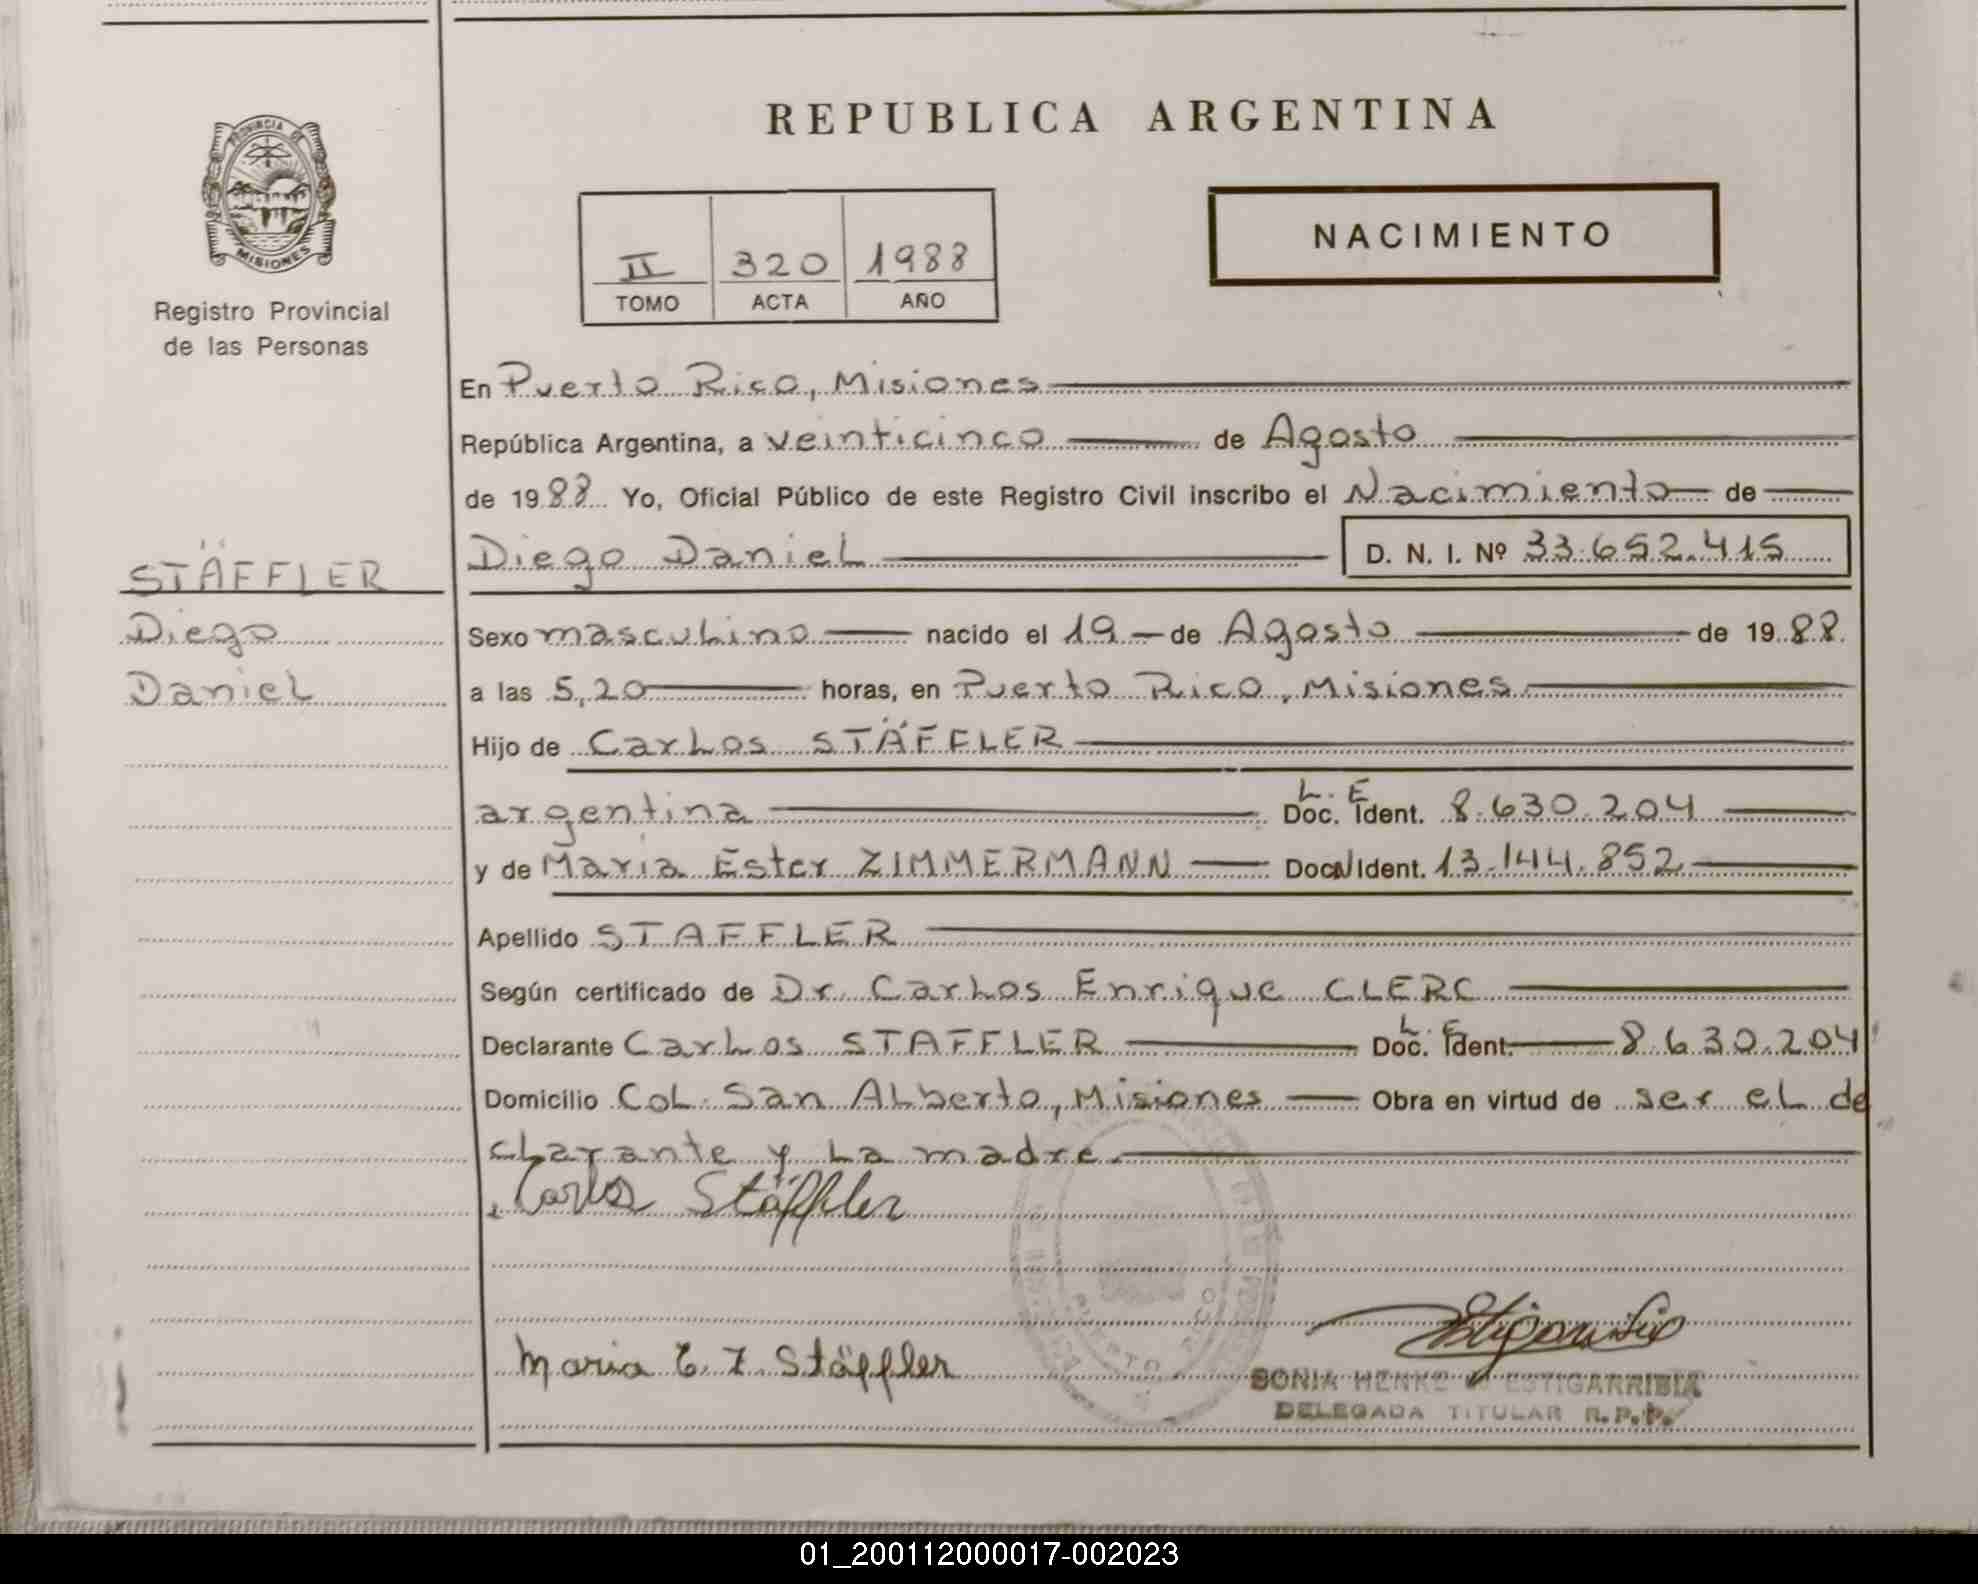 REPUBLICA ARGENTINA
PROVINCIA DE
MISIONES
Registro Provincial
de las Personas
NACIMIENTO
II 320 1988
TOMO ACTA AÑO
En Puerto Rico, Misiones
República Argentina, a veinticinco de Agosto
de 1988 Yo, Oficial Público de este Registro Civil inscribo el Nacimiento de
STÄFFLER
Diego
Daniel
Diego Daniel D. N. I. Nº 33.652.415
Sexo masculino nacido el 19 de Agosto de 1988.
a las 5,20 horas, en Puerto Rico, Misiones
Hijo de Carlos STÄFFLER
argentina Doc. Ident. L. E 8.630.204
y de Maria Ester ZIMMERMANN Doc. Ident. 13.144.852
Apellido STAFFLER
Según certificado de Dr. Carlos Enrique CLERC
Declarante Carlos STAFFLER Doc. Ident. L. E 8.630.204
Domicilio Col. San Alberto, Misiones Obra en virtud de ser el de
clarante y la madre.
Carlos Stäffler
PUERTO RICO
Maria E. Z. Stäffler
SONIA HENKE ESTIGARRIBIA
DELEGADA TITULAR R.P.P.
01_200112000017-002023